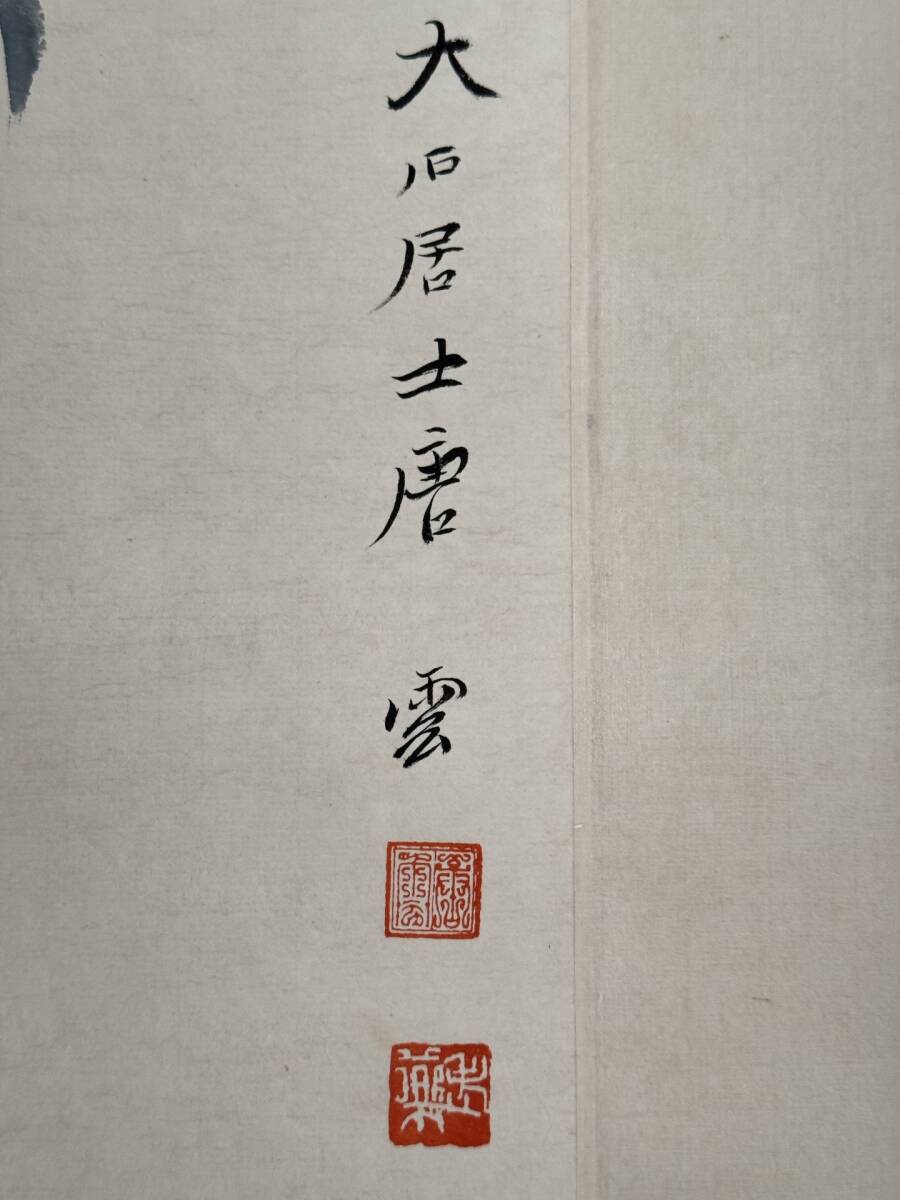 大石居士唐雲